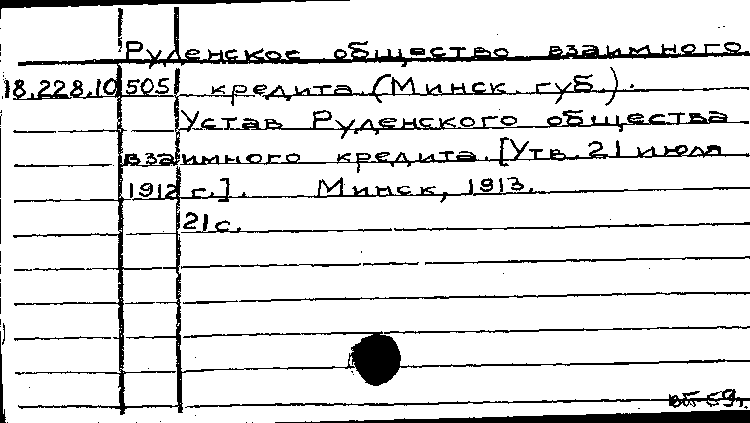 Руденское общество взаимного
18.228.10.505 кредита (Минск. губ.).
Устав Руденского общества
взаимного кредита. [Утв. 21 июля
1912 г.]. Минск, 1913.
21 с.
59 г.